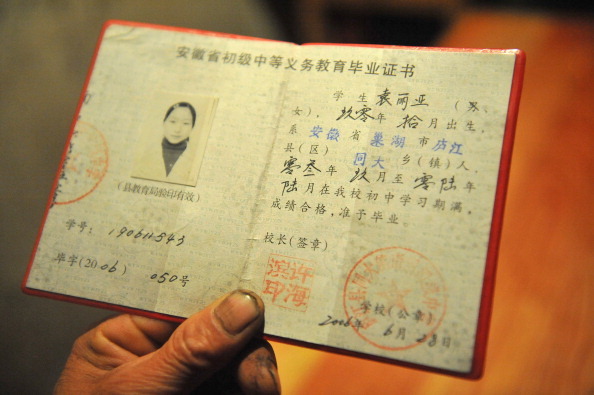 安徽省初级中等义务教育毕业证书
学生袁丽亚(男、
女),玖零年拾月出生,
系安徽省巢湖市庐江
县(区)同大乡(镇)人,
零叁年玖月至零陆年
陆月在我校初中学习期满,
成绩合格,准予毕业。
校长(签章)
学校(公章)
2006年6月28日
(县教育局验印有效)
学号:190611543
毕字(2006)050号